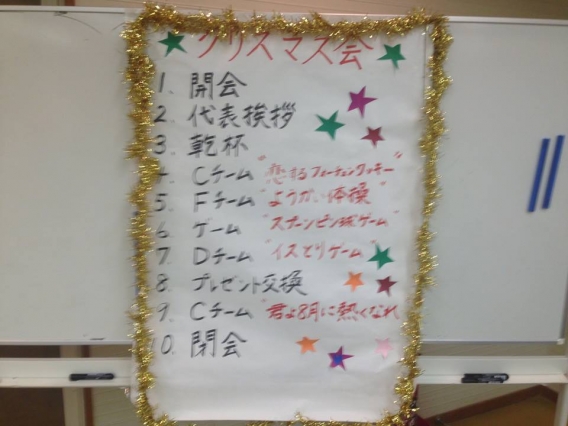 クリスマス会
1. 開会
2. 代表挨拶
3. 乾杯
4. Cチーム "恋するフォーチュンクッキー"
5. Fチーム "ようかい体操"
6. ゲーム "スプーンピン球ゲーム"
7. Dチーム "イスとりゲーム"
8. プレゼント交換
9. Cチーム "君よ8月に熱くなれ
10. 閉会